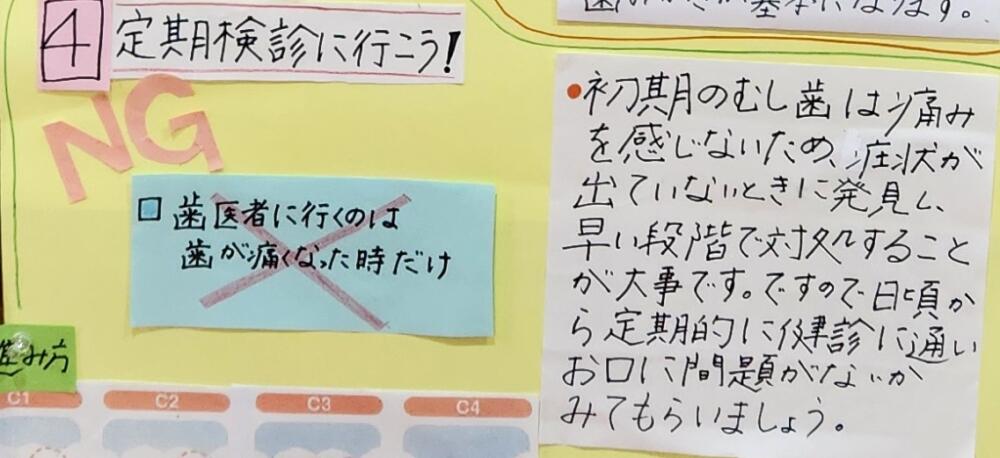 4 定期検診に行こう!
NG
□ 歯医者に行くのは
歯が痛くなった時だけ
み方
C1 C2 C3 C4
基本になります。
•初期のむし歯は痛み
を感じないため、症状が
出ていないときに発見し、
早い段階で対処すること
が大事です。ですので日頃か
ら定期的に健診に通い
お口に問題がないか
みてもらいましょう。